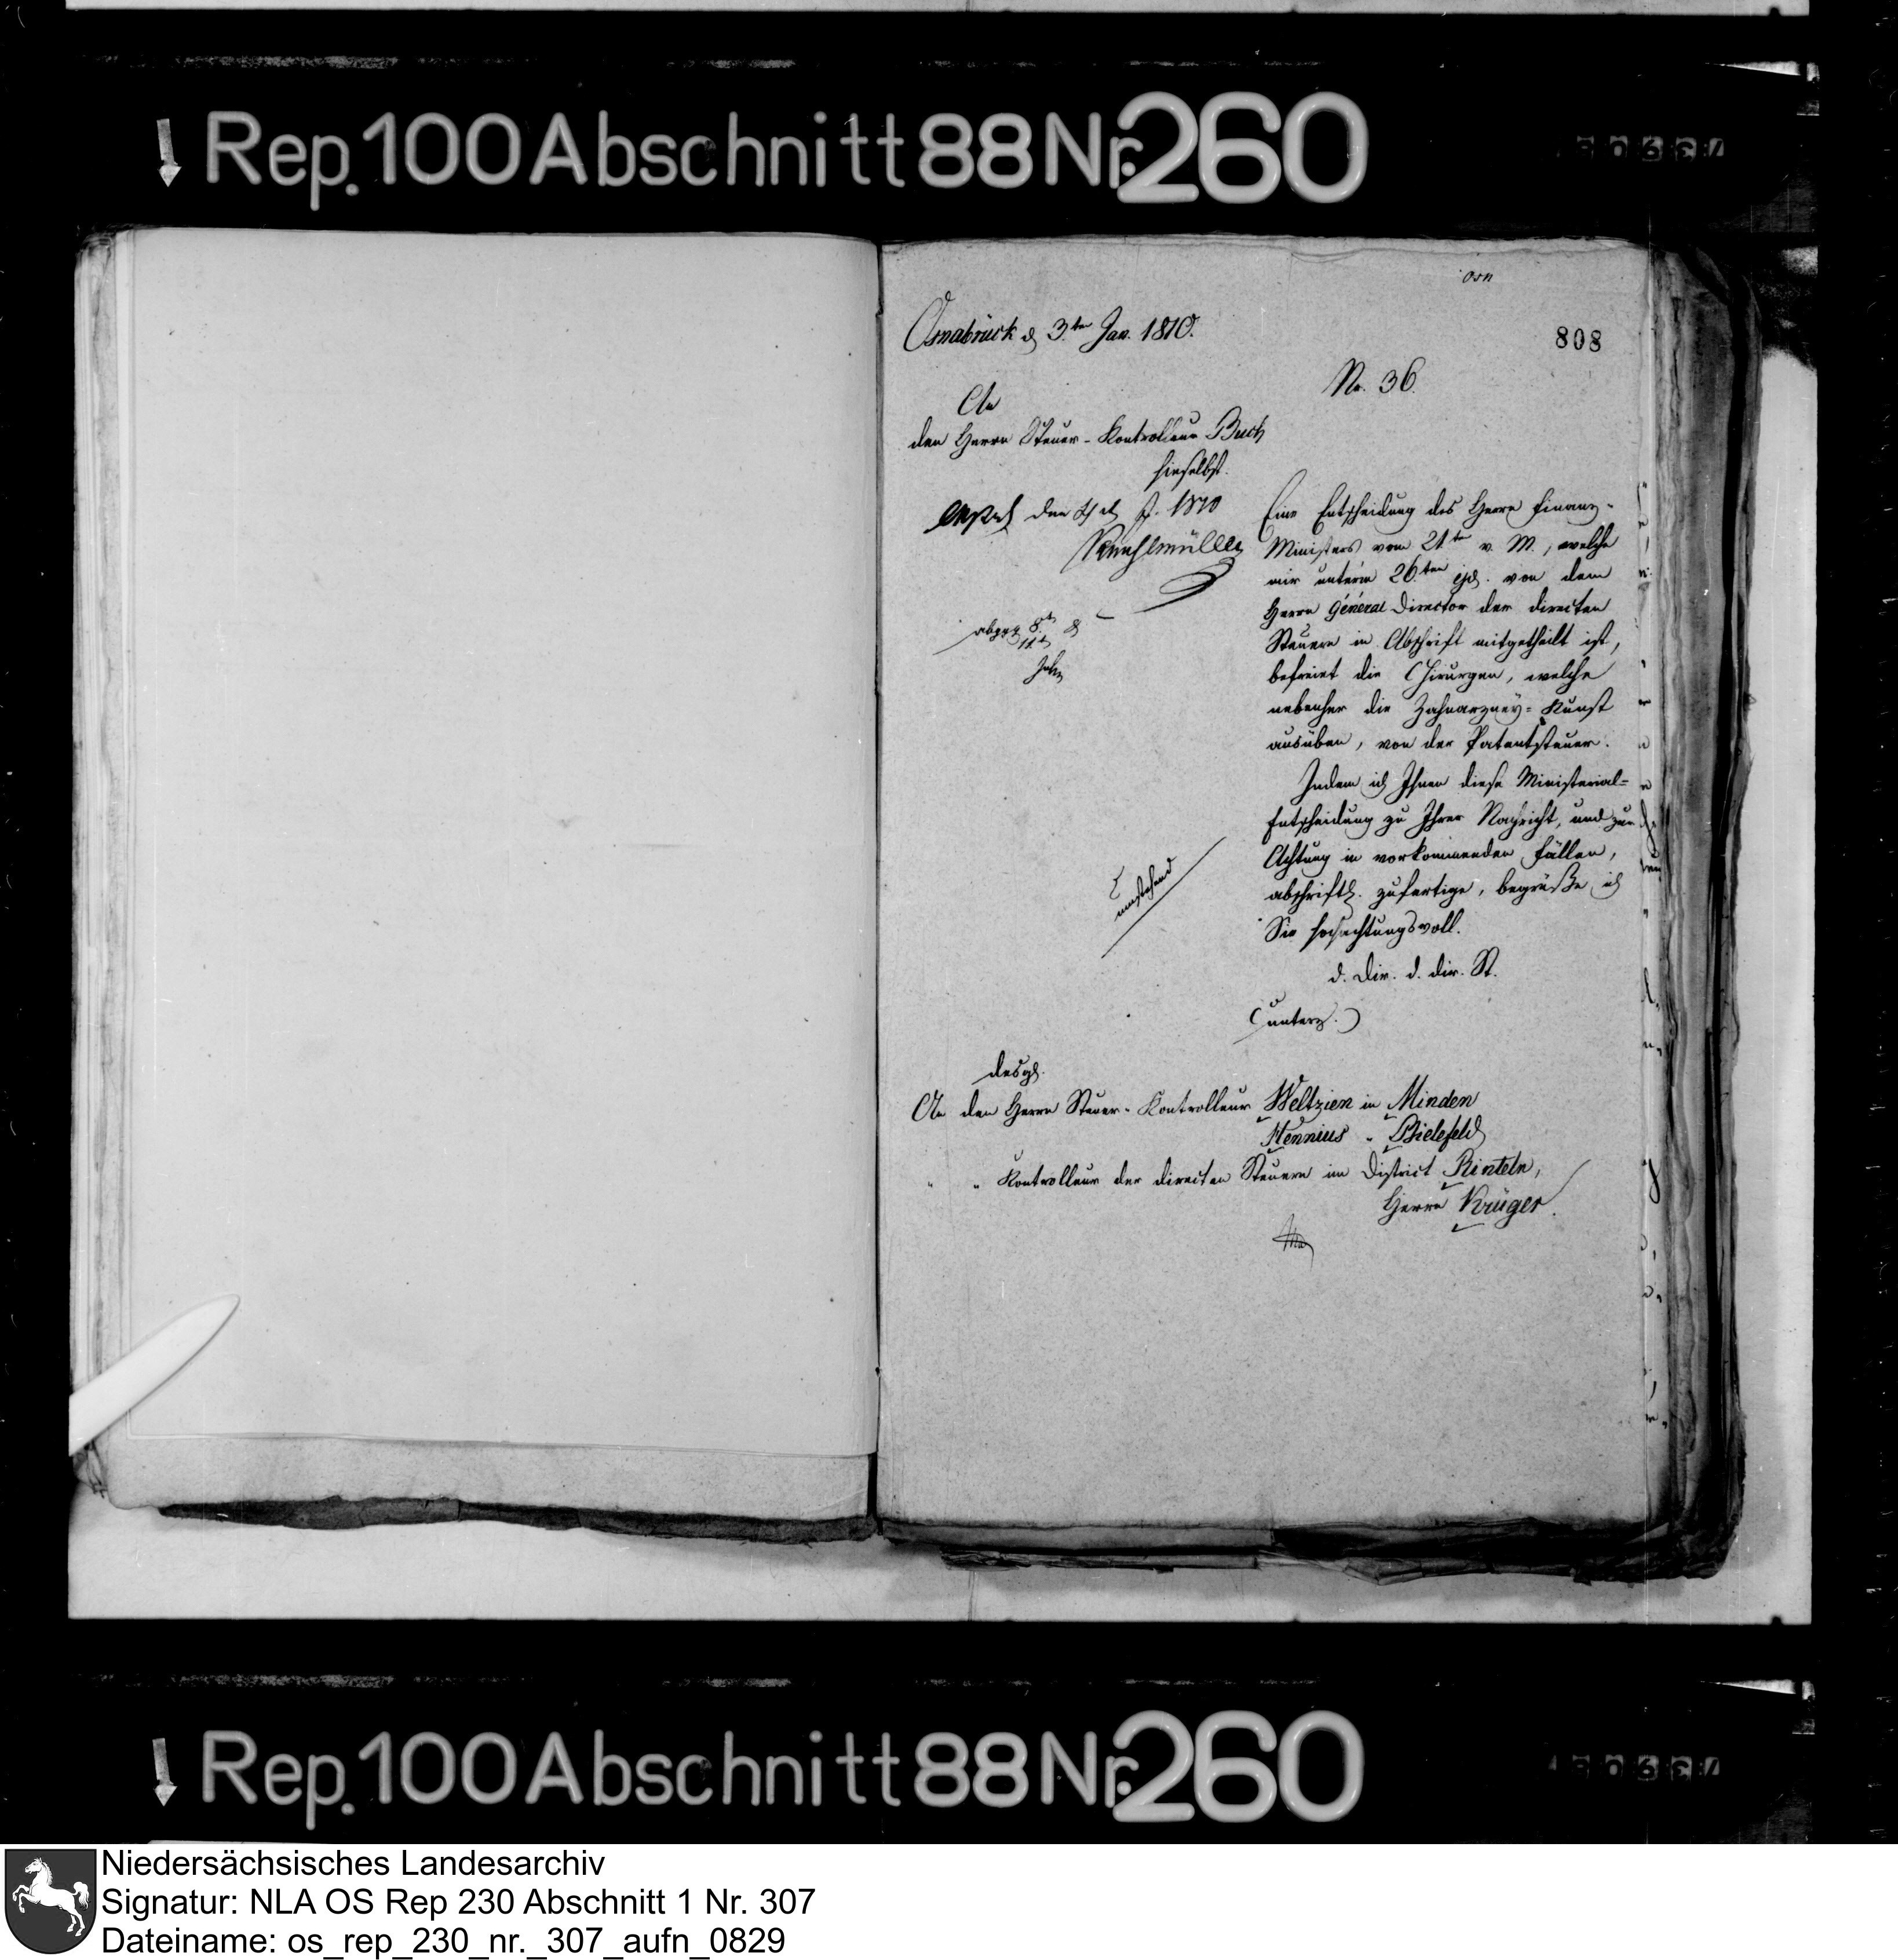 Rep. 100 Abschnitt 88 Nr. 260
Osnabrück d 3.ten Jan. 1810.
808
No. 36.
An
den Herrn Steuer-Kontrolleur Buch
hieselbst.
den J. 1810
Eine Entscheidung des Herrn Finanz-
Ministers vom 21.ten v. M., welche
mir unterm 26.ten ejd. von dem
Herrn Général Director der directen
Steuern in Abschrift mitgetheilt ist,
befreiet die Chirurgen, welche
nebenher die Zahnarzney-Kunst
ausüben, von der Patentsteuer.
Indem ich Ihnen diese Ministerial-
Entscheidung zu Ihrer Nachricht, und zur
Achtung in vorkommenden Fällen,
abschriftl. zufertige, begrüße ich
Sie hochachtungsvoll.
umstehend
d. Dir. d. dir. St.
(unterz.)
desgl.
An den Herrn Steuer-Kontrolleur Weltzien in Minden
Hennius " Bielefeld
" " Kontrolleur der directen Steuern im District Rinteln,
Herrn Krüger.
Rep. 100 Abschnitt 88 Nr. 260
Niedersächsisches Landesarchiv
Signatur: NLA OS Rep 230 Abschnitt 1 Nr. 307
Dateiname: os_rep_230_nr._307_aufn_0829